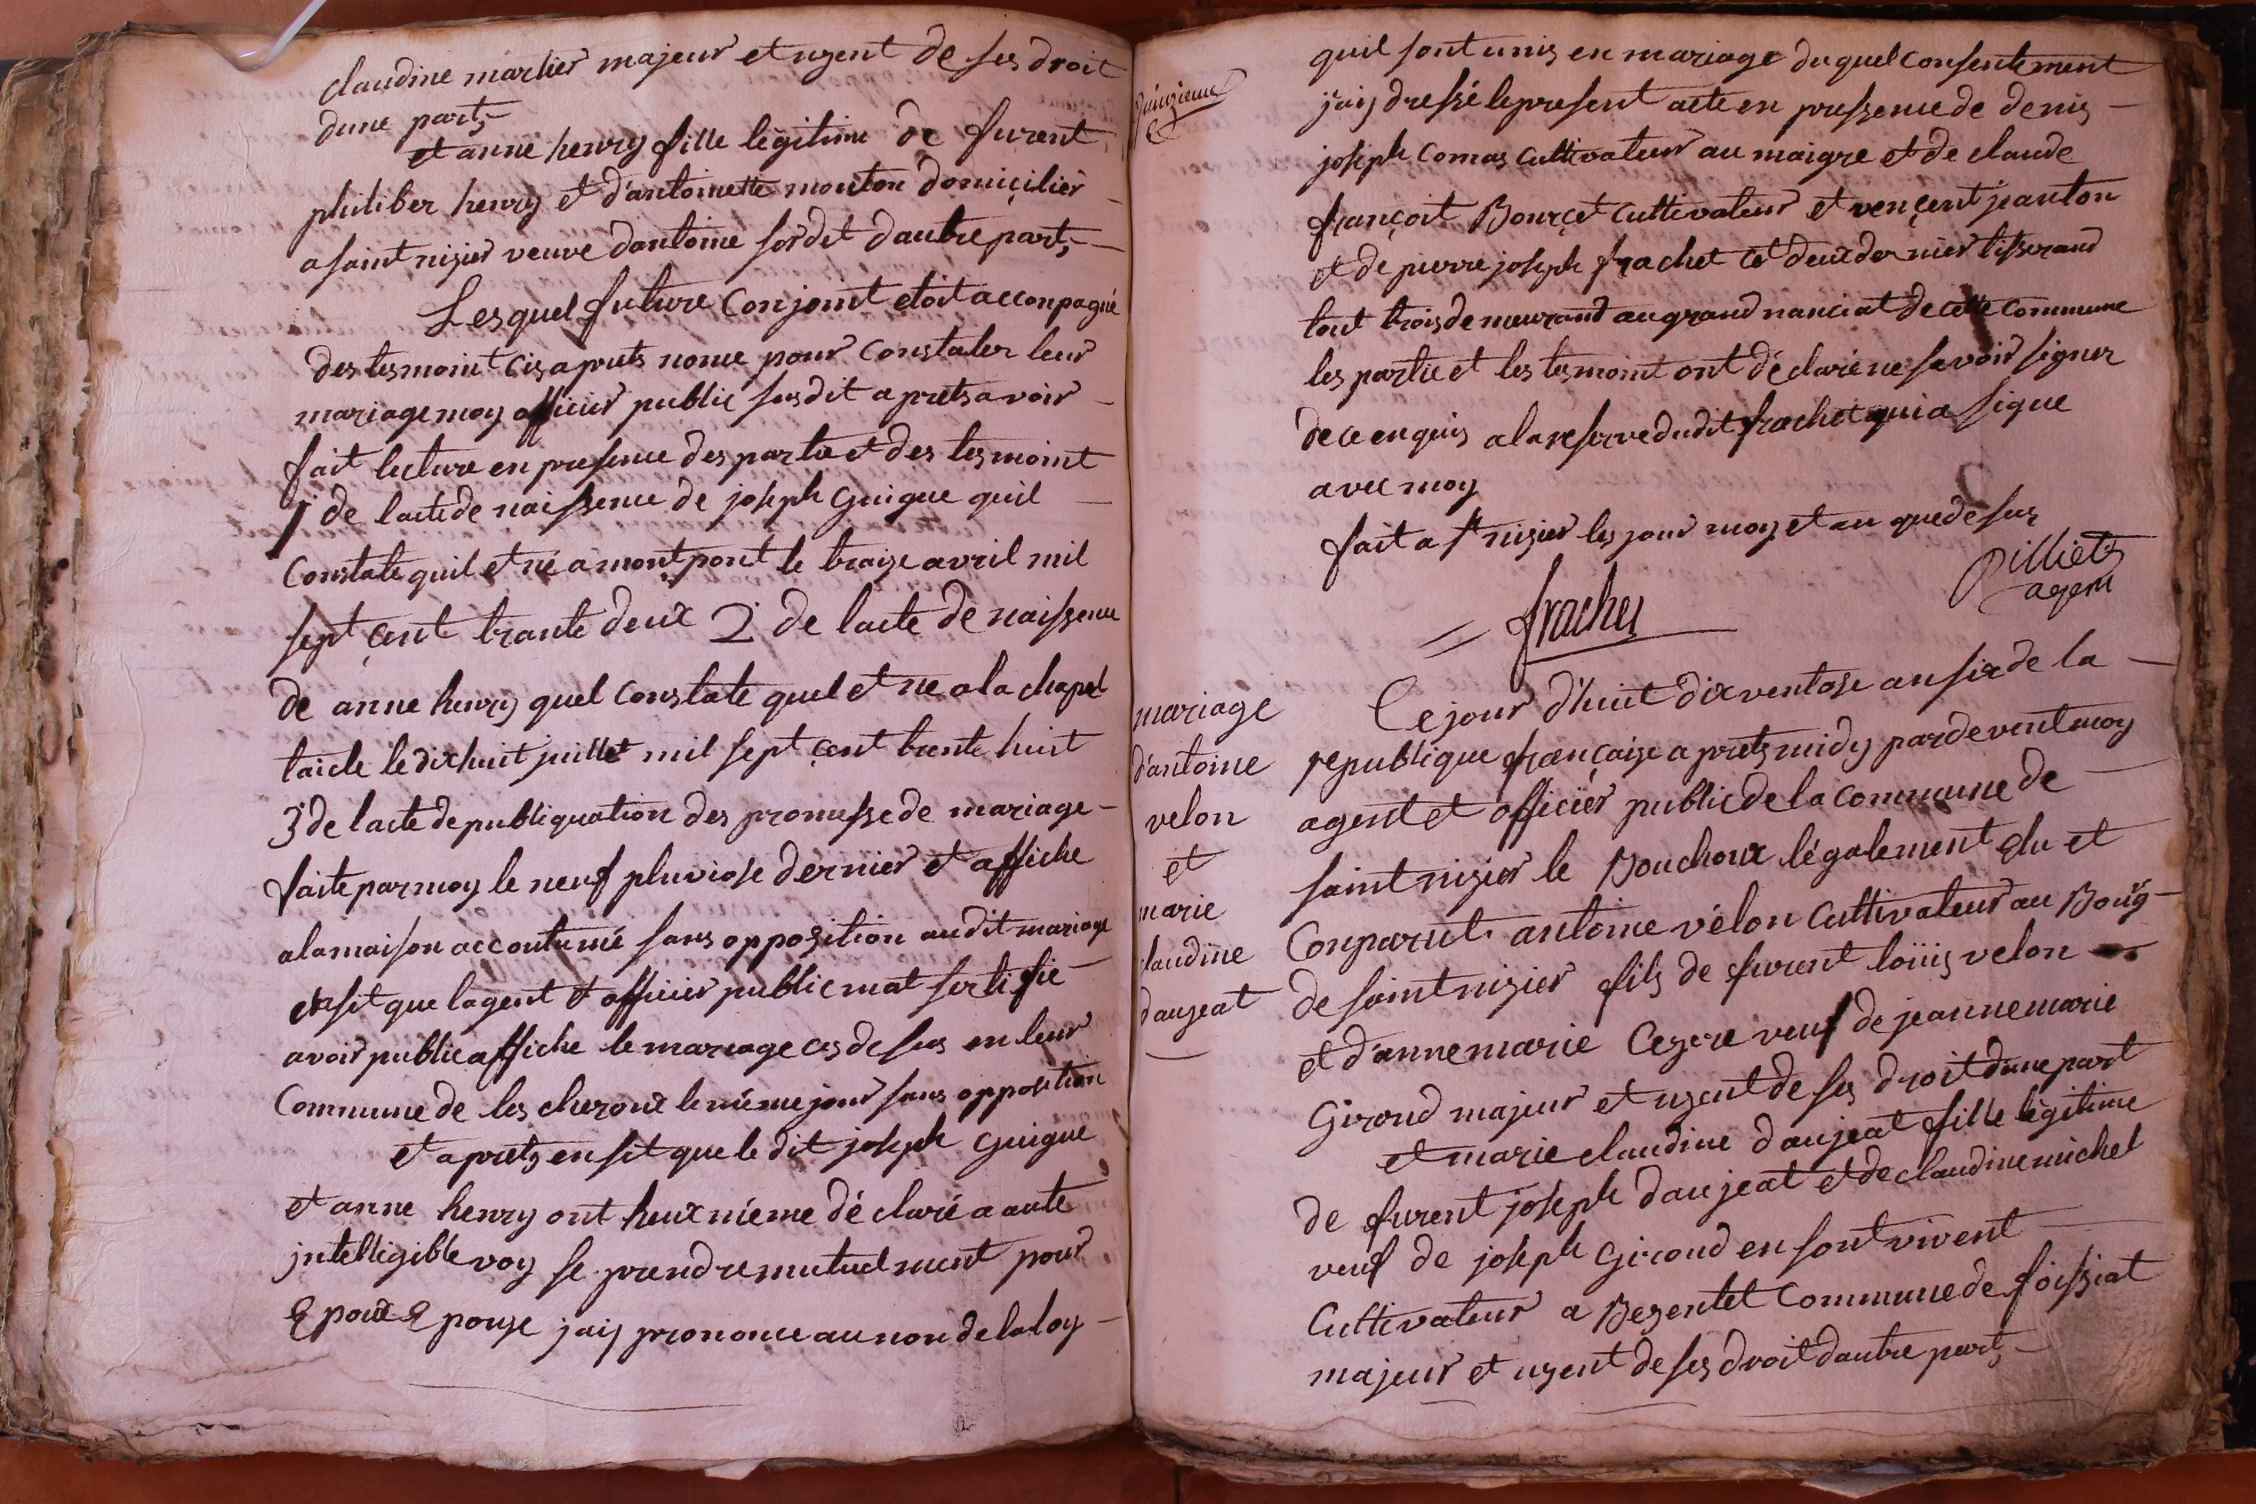 claudine marlier majeur et uzent de ses droit
dune parts
et anne henry fille legitime de furent
philiber henry et d'antoinette mouton domicilier
a saint nizier veuve dantoine sordet dautre parts
Lesquel future conjoint etoit acconpagné
des tesmoint cis aprets nome pour constater leur
mariage moy officier public susdit a prets avoir
fait lecture en presence des partie et des tesmoint
1° de lacte de naissence de joseph guigue quil
constate quil et né a montpont le traize avril mil
sept çent trante deux 2° de lacte de naissence
de anne henry quel constate quel et ne a la chapel
taicle le dixhuit juillet mil sept çent trente huit
3° de lacte de publiquation des promesse de mariage
faite par moy le neuf pluviose dernier et affiche
a la maison accoutumé sans opposition audit mariage
ensit que lagent et officier public mat sertifie
avoir public affiche le mariage cis desus en leur
Commune de les cheroux le même jour sans opposition
et aprets ensit que le dit joseph guigue
et anne henry ont heux même déclaré a aute
jntelligible voy se prendre mutuelment pour
Epoux Epouze jaiy prononce au non de la loy
quil sont unis en mariage duquel consentement
j'aiy dressé le present acte en pressence de denis
joseph comas cultivateur au maigre et de claude
françoit Bourçet cultivateur et vençent jeanton
et de pierre joseph frachet cet deux dernier tisserand
tout trois demeurant au grand nanciat de cette commune
les partie et les tesmoint ont déclaré ne savoir signer
de ce enquis a la reserve dudit frachet qui a signe
avec moy
fait a st nizier les jour moy et an que desus
Pilliets
agent
frachet
mariage
d'antoine
velon
et
marie
claudine
daujeat
Ce jour d'huit dix ventose an six de la
republique française a prets midy pardevent moy
agent et officiër public de la commune de
saint nizier le Bouchoux légalement élu et
Conparut antoine vélon cultivateur au Bourg
de saint nizier fils de furent loüis velon
et d'anne marie Cezere veuf de jeanne marie
Giroud majeur et uzent de ses droit dune part
et marie claudine daujeat fille légitime
de furent joseph daujeat et de claudine michel
veuf de joseph Giroud en sont vivent
Cultivateur a Bezentet Commune de foissiat
majeur et uzent de ses droit dautre parts